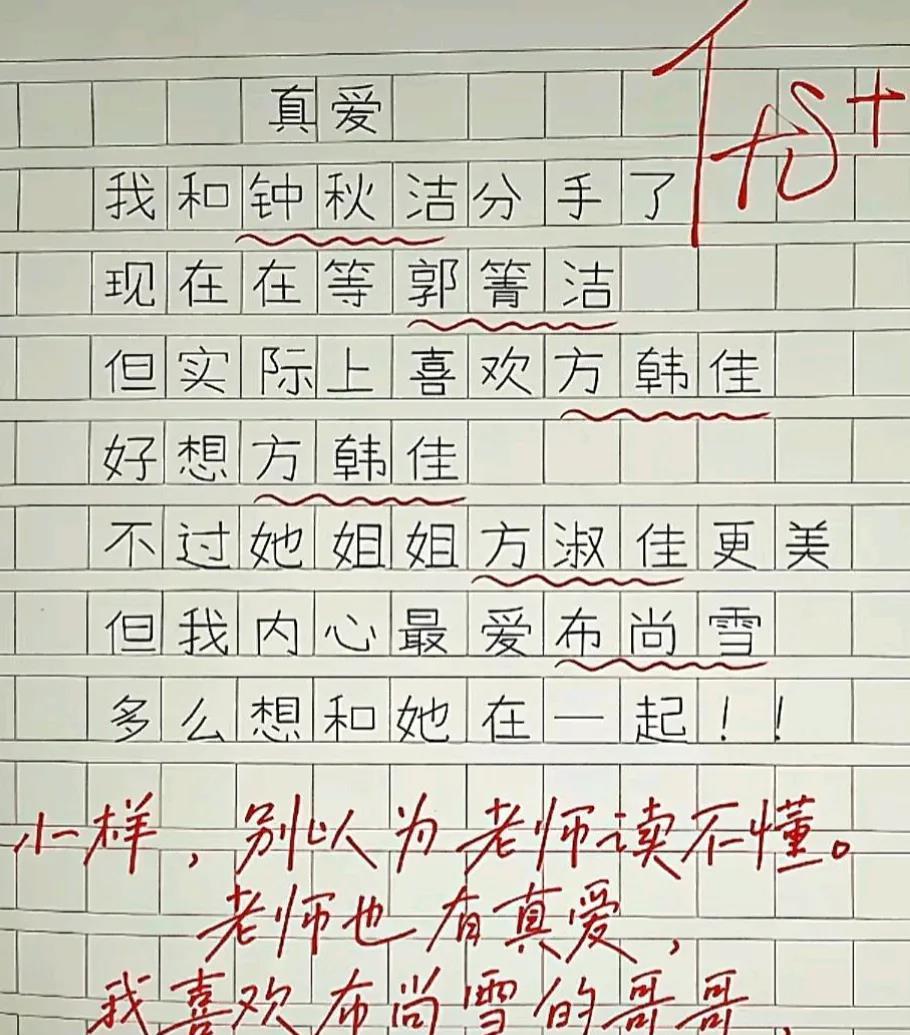 真爱
优+
我和钟秋洁分手了
现在在等郭箐洁
但实际上喜欢方韩佳
好想方韩佳
不过她姐姐方淑佳更美
但我内心最爱布尚雪
多么想和她在一起！！
小样，别以为老师读不懂。
老师也有真爱，
我喜欢布尚雪的哥哥，